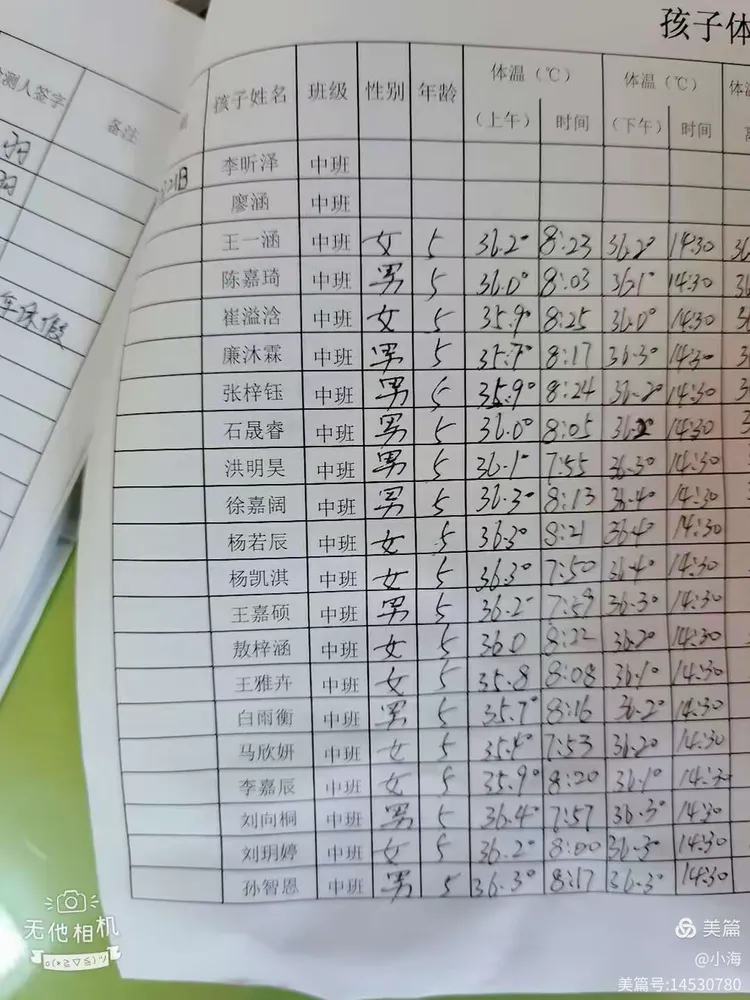 孩子体
测人签字
备注
孩子姓名 班级 性别 年龄 体温（℃） 体温（℃） 体
（上午） 时间 （下午） 时间
李昕泽 中班
廖涵 中班
王一涵 中班 女 5 36.2° 8:23 36.2° 14:30
陈嘉琦 中班 男 5 36.0° 8:03 36.1° 14:30
崔溢浛 中班 女 5 35.9° 8:25 36.0° 14:30
廉沐霖 中班 男 5 8:17 36.3° 14:30
张梓钰 中班 男 5 35.9° 8:24 36.2° 14:30
石晟睿 中班 男 5 36.0° 8:05 14:30
洪明昊 中班 男 5 36.1° 7:55 36.3° 14:30
徐嘉阔 中班 男 5 36.3° 8:13 36.4° 14:30
杨若辰 中班 女 5 36.3° 8:21 36.4° 14:30
杨凯淇 中班 女 5 36.3° 7:50 36.4° 14:30
王嘉硕 中班 男 5 36.2° 7:59 36.3° 14:30
敖梓涵 中班 女 5 36.0 8:22 36.2° 14:30
王雅卉 中班 女 5 35.8 8:08 36.1° 14:30
白雨衡 中班 男 5 35.7° 8:16 36.2° 14:30
马欣妍 中班 女 5 35.4° 7:53 36.2° 14:30
李嘉辰 中班 女 5 35.9° 8:20 36.1° 14:30
刘向桐 中班 男 5 36.4° 7:57 36.3° 14:30
刘玥婷 中班 女 5 36.2° 8:00 36.3° 14:30
孙智恩 中班 男 5 36.3° 8:17 36.3° 14:30
无他相机
美篇
@小海
美篇号:14530780